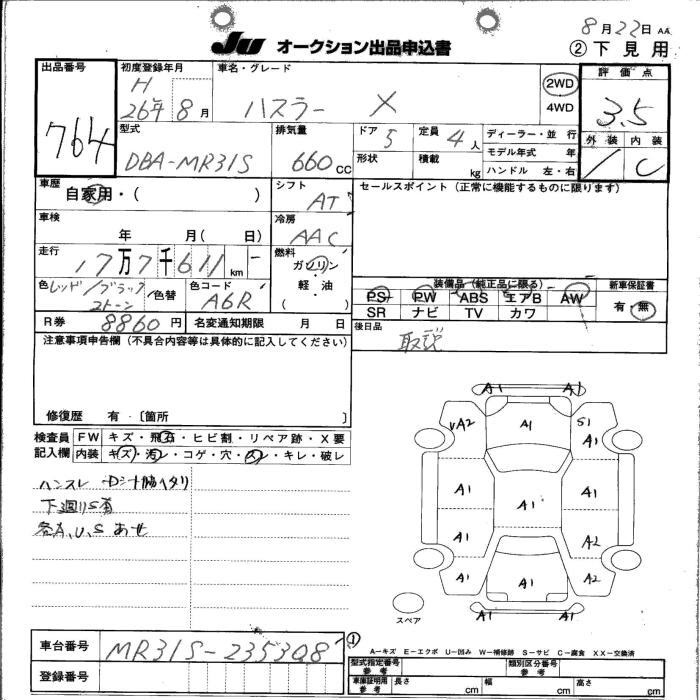 8月22日 AA
JU オークション出品申込書
②下見用
出品番号
764
初度登録年月
H
26年 8月
車名・グレード
ハスラー X
2WD
4WD
評価点
3.5
外装 内装
/ C
型式
DBA-MR31S
排気量
660 cc
ドア 5
形状
定員 4人
積載 kg
ディーラー・並行
モデル年式 年
ハンドル 左・右
車歴
自家用・( )
シフト
AT
セールスポイント (正常に機能するものに限ります)
車検
年 月( 日)
冷房
AAC
走行
17万7千611 km
燃料
ガソリン
軽・油
( ・ )
色 レッド/ブラック
2トーン /色替
色コード
A6R
装備品 (純正品に限る)
PS PW ABS エアB AW
SR ナビ TV カワ
新車保証書
有・無
R券 8860円
名変通知期限 月 日
後日品
取説
注意事項申告欄 (不具合内容等は具体的に記入してください)
修復歴 有・〔箇所 〕
検査員
記入欄
FW キズ・飛石・ヒビ割・リペア跡・X要
内装 キズ・汚レ・コゲ・穴・スレ・キレ・破レ
ハンスレ Dシート ヘタリ
下廻りS有
各A、U、S あせ
A1 A1
UA2 A1 S1 A1
A1 A1 A1
A1 A2
A1 A1 A2
A1 A1
スペア
車台番号
MR31S-235308
登録番号
①
A-キズ E-エクボ U-凹み W-補修跡 S-サビ C-腐食 XX-交換済
型式指定番号
類別区分番号
車庫証明用
参考
長さ cm 幅 cm 高さ cm